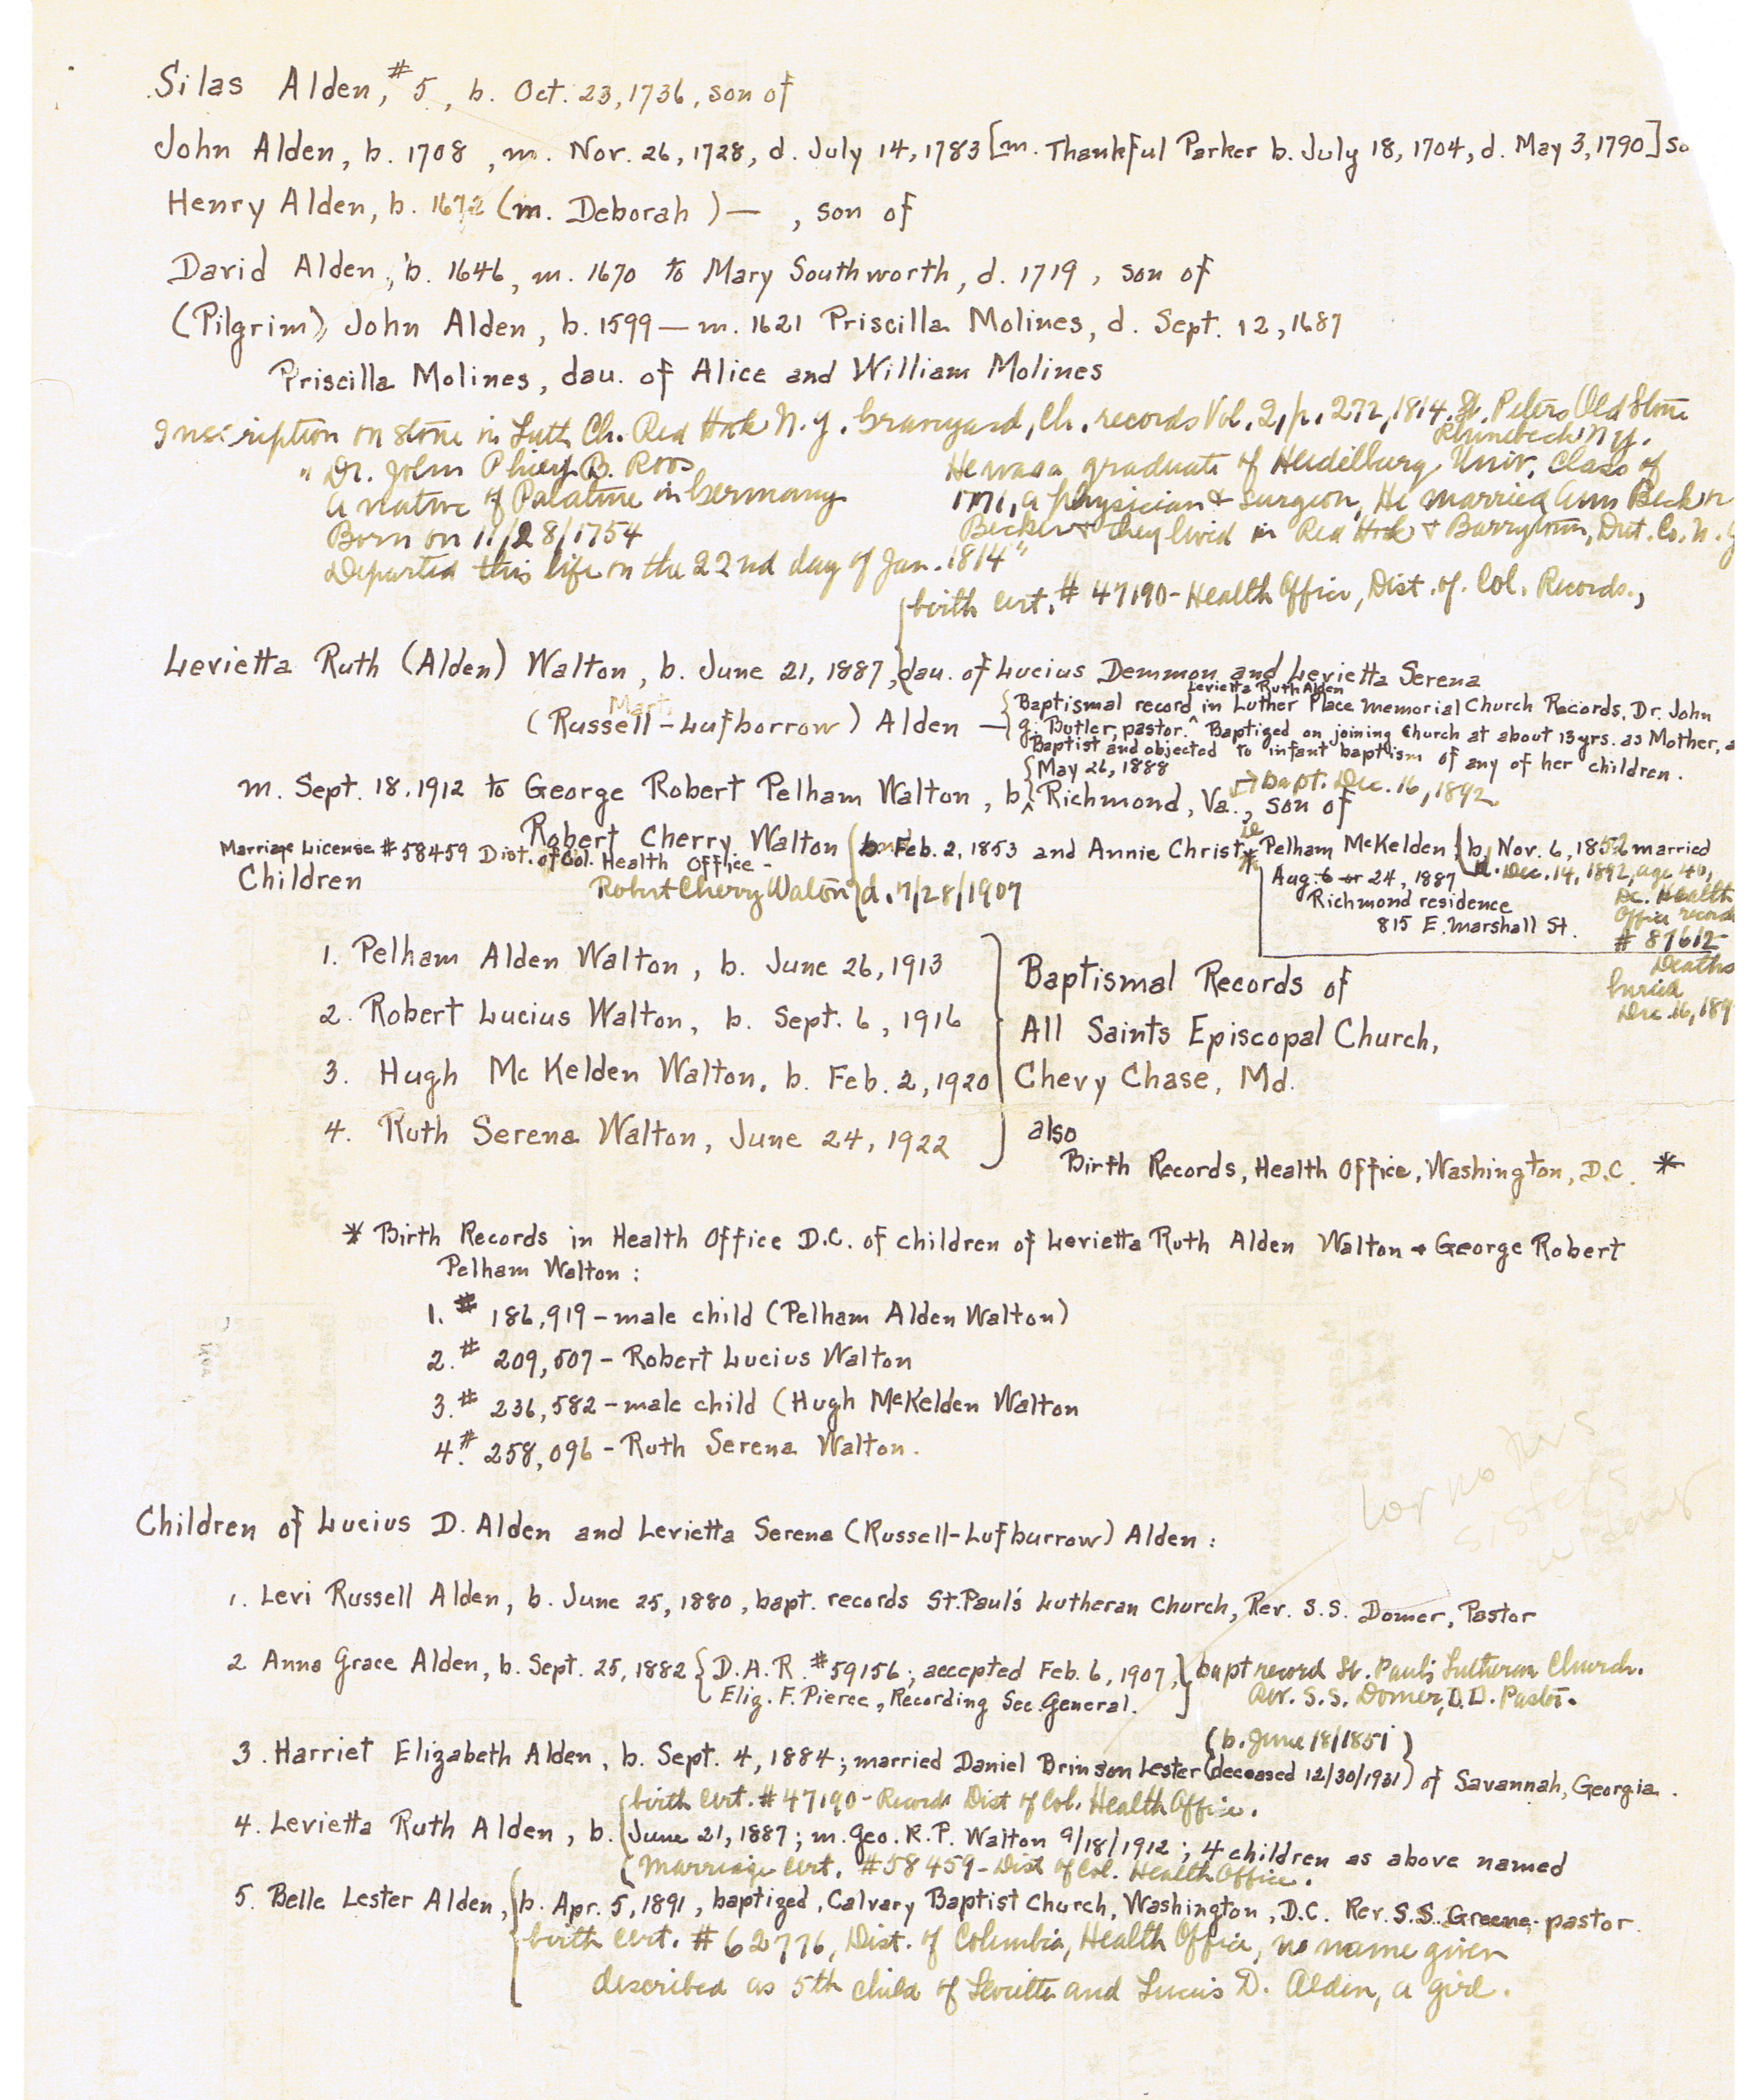 Silas Alden, #5, b. Oct. 23, 1736, son of
John Alden, b. 1708, m. Nov. 26, 1728, d. July 14, 1783 [m. Thankful Parker b. July 18, 1704, d. May 3, 1790] so
Henry Alden, b. 1672 (m. Deborah ) — , son of
David Alden, b. 1646, m. 1670 to Mary Southworth, d. 1719, son of
(Pilgrim) John Alden, b. 1599 — m. 1621 Priscilla Molines, d. Sept. 12, 1687
Priscilla Molines, dau. of Alice and William Molines
Inscription on stone in Luth. Ch. Red Hook N.Y. Graveyard, Ch. records Vol. 2, p. 272, 1814. St. Peters Old Stone
Rhinebeck N.Y.
" Dr. John B. Roos
a native of Palatine in Germany
Born on 11/28/1754
Departed this life on the 22nd day of Jan. 1814"
He was a graduate of Heidelburg Univ, Class of
1771, a physician & surgeon, He married Ann
Becker & they lived in Red Hook & Barrytown, Dut. Co. N.Y
birth cert. # 47190 - Health Office, Dist. of. Col. Records.,
Levietta Ruth (Alden) Walton, b. June 21, 1887, dau. of Lucius Demmon and Levietta Serena
(Russell - Lufborrow) Alden —
Levietta Ruth Alden
Baptismal record in Luther Place Memorial Church Records, Dr. John
G. Butler, pastor. ^ Baptized on joining Church at about 13 yrs. as Mother, a
Baptist and objected to infant baptism of any of her children.
May 26, 1888
m. Sept. 18, 1912 to George Robert Pelham Walton, b. ^ Richmond, Va., son of
→ bapt. Dec. 16, 1892
Robert Cherry Walton b. Feb. 2, 1853 and Annie Christie Pelham McKelden b. Nov. 6, 1852 married
Marriage License #58459 Dist. of Col. Health Office -
Robert Cherry Walton d. 7/28/1907
Aug. 6 or 24, 1887
Richmond residence
815 E. Marshall St.
d. Dec. 14, 1892, age 40,
DC. Health
Office record
# 87612
Deaths
buried
Dec. 16, 189
Children
1. Pelham Alden Walton, b. June 26, 1913
2. Robert Lucius Walton, b. Sept. 6, 1916
3. Hugh McKelden Walton, b. Feb. 2, 1920
4. Ruth Serena Walton, June 24, 1922
Baptismal Records of
All Saints Episcopal Church,
Chevy Chase, Md.
also
Birth Records, Health Office, Washington, D.C. *
* Birth Records in Health Office D.C. of children of Levietta Ruth Alden Walton & George Robert
Pelham Walton :
1. # 186,919 - male child (Pelham Alden Walton)
2. # 209,507 - Robert Lucius Walton
3. # 236,582 - male child (Hugh McKelden Walton
4. # 258,096 - Ruth Serena Walton.
Children of Lucius D. Alden and Levietta Serena (Russell-Lufburrow) Alden :
1. Levi Russell Alden, b. June 25, 1880, bapt. records St. Paul's Lutheran Church, Rev. S.S. Domer, Pastor
2 Anna Grace Alden, b. Sept. 25, 1882 { D.A.R. #59156; accepted Feb. 6, 1907, } bapt record St. Paul's Lutheran Church.
Eliz. F. Pierce, Recording Sec. General.
Rev. S.S. Domer, D.D. Pastor.
(b. June 18/1851)
3. Harriet Elizabeth Alden, b. Sept. 4, 1884; married Daniel Brinson Lester (deceased 12/30/1931) of Savannah, Georgia.
birth cert. # 47190 - Records Dist of Col. Health Office.
4. Levietta Ruth Alden, b. June 21, 1887; m. Geo. R.P. Walton 9/18/1912; 4 children as above named
Marriage Cert. #58459 - Dist of Col. Health Office.
5. Belle Lester Alden, b. Apr. 5, 1891, baptized, Calvary Baptist Church, Washington, D.C. Rev. S.S. Greene - pastor.
birth cert. # 62776, Dist. of Columbia, Health Office, no name given
described as 5th child of Levietta and Lucius D. Alden, a girl.